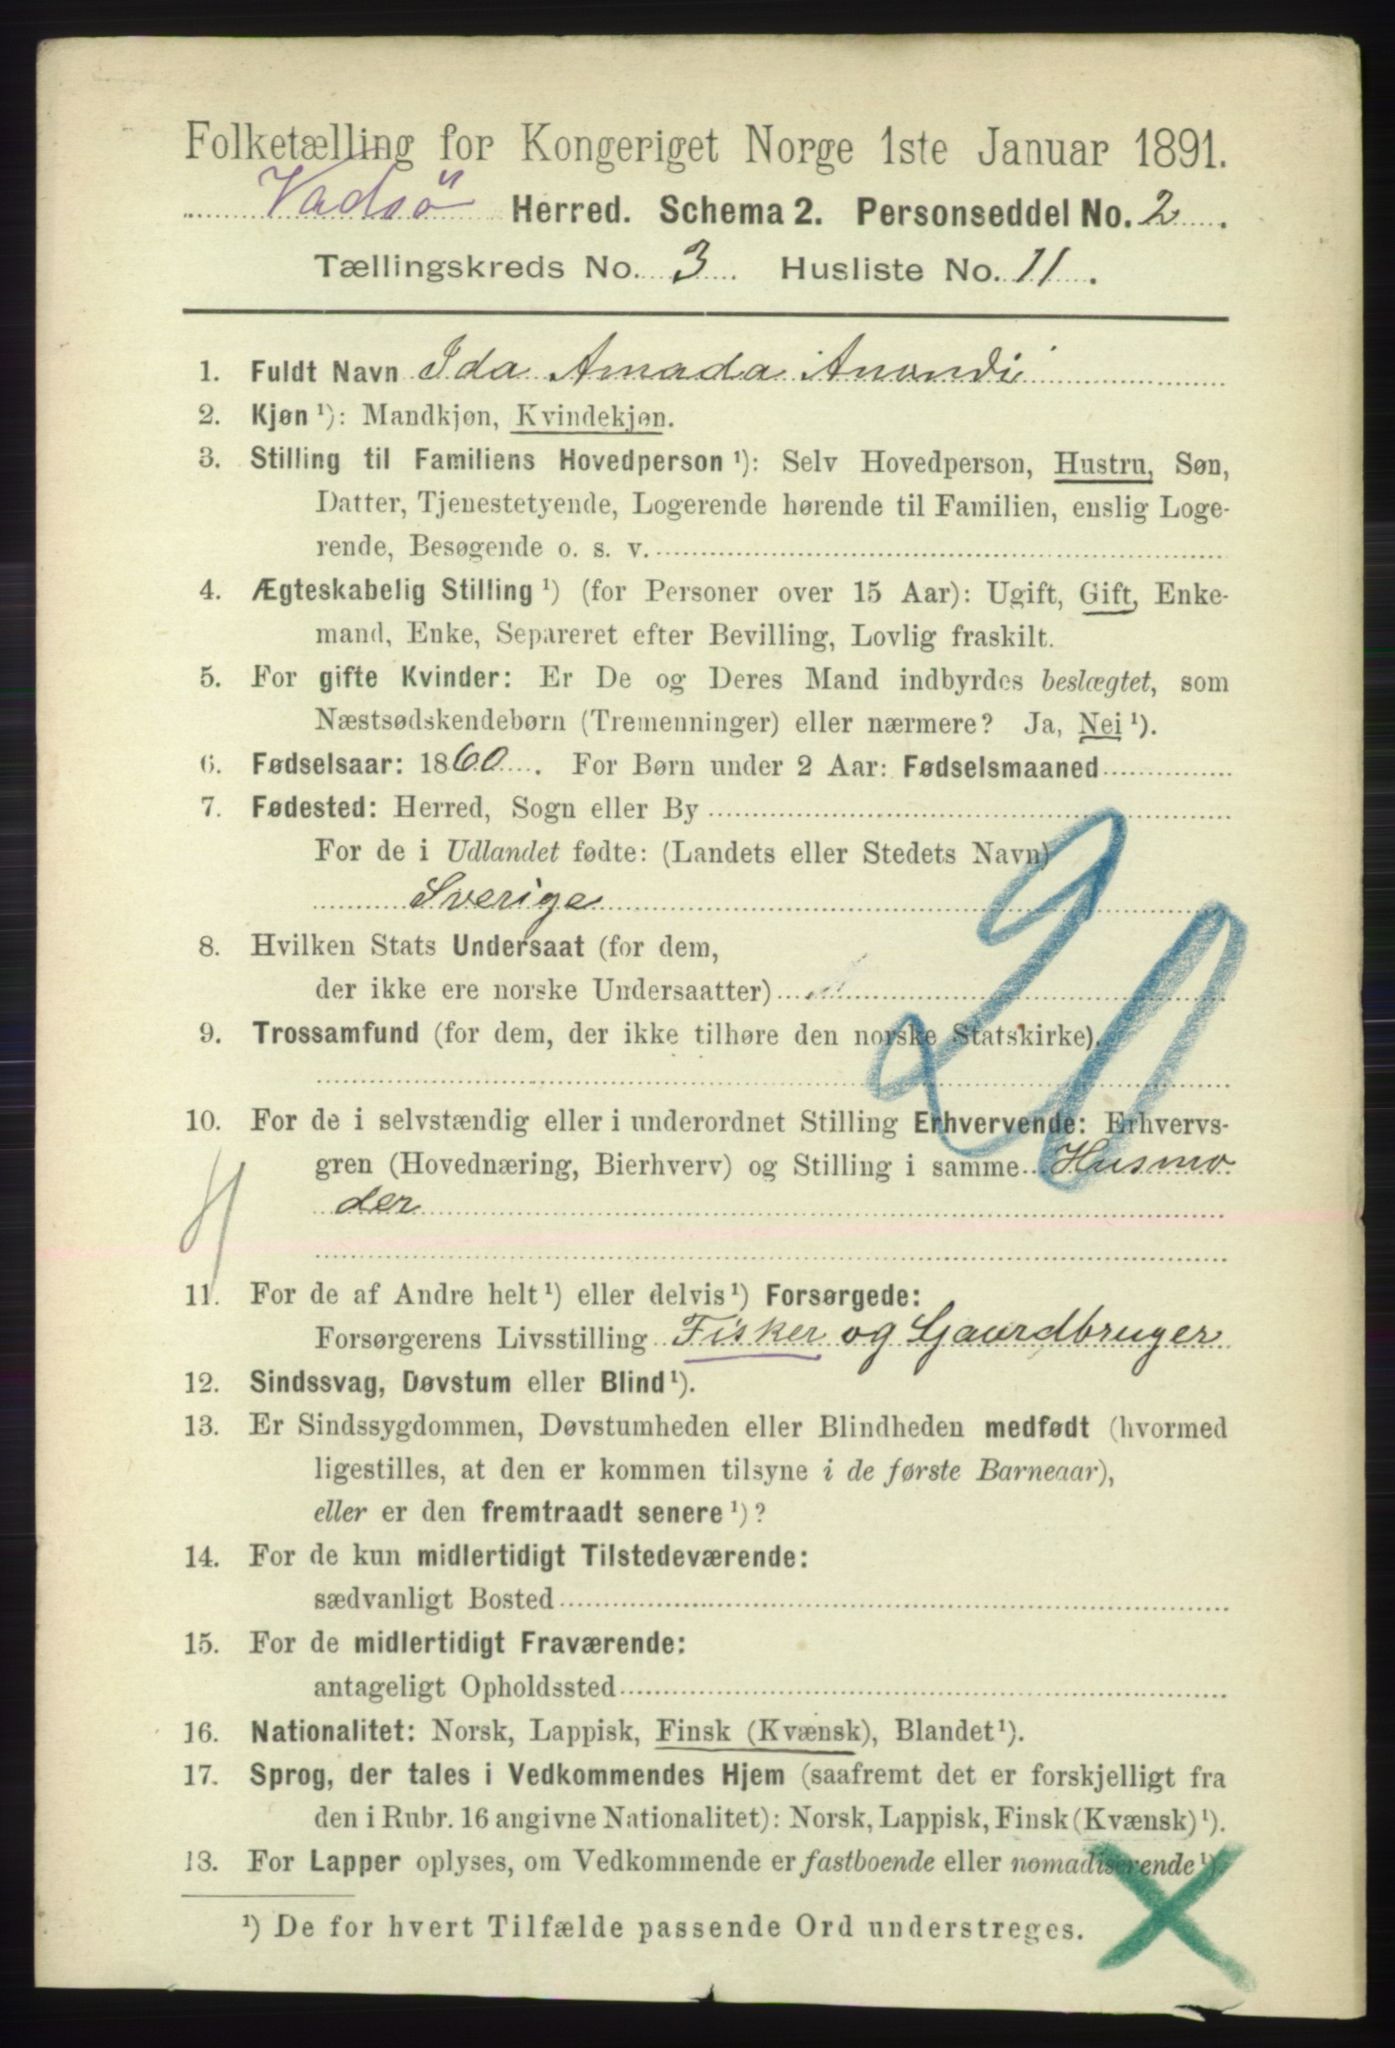 Folketælling for Kongeriget Norge 1ste Januar 1891.
Vadsö Herred. Schema 2. Personseddel No. 2.
Tællingskreds No. 3 Husliste No. 11.
1. Fuldt Navn Ida Amada
2. Kjøn ¹): Mandkjøn, Kvindekjøn.
3. Stilling til Familiens Hovedperson ¹): Selv Hovedperson, Hustru, Søn,
Datter, Tjenestetyende, Logerende hørende til Familien, enslig Loge-
rende, Besøgende o. s. v.
4. Ægteskabelig Stilling ¹) (for Personer over 15 Aar): Ugift, Gift, Enke-
mand, Enke, Separeret efter Bevilling, Lovlig fraskilt.
5. For gifte Kvinder: Er De og Deres Mand indbyrdes beslægtet, som
Næstsødskendebørn (Tremenninger) eller nærmere? Ja, Nei ¹).
6. Fødselsaar: 1860. For Børn under 2 Aar: Fødselsmaaned
7. Fødested: Herred, Sogn eller By
For de i Udlandet fødte: (Landets eller Stedets Navn)
Sverige
8. Hvilken Stats Undersaat (for dem,
der ikke ere norske Undersaatter)
9. Trossamfund (for dem, der ikke tilhøre den norske Statskirke).
10. For de i selvstændig eller i underordnet Stilling Erhvervende: Erhvervs-
gren (Hovednæring, Bierhverv) og Stilling i samme Husmo
der
11. For de af Andre helt ¹) eller delvis ¹) Forsørgede:
Forsørgerens Livsstilling Fisker og Gaardbruger
12. Sindssvag, Døvstum eller Blind ¹).
13. Er Sindssygdommen, Døvstumheden eller Blindheden medfødt (hvormed
ligestilles, at den er kommen tilsyne i de første Barneaar),
eller er den fremtraadt senere ¹)?
14. For de kun midlertidigt Tilstedeværende:
sædvanligt Bosted
15. For de midlertidigt Fraværende:
antageligt Opholdssted
16. Nationalitet: Norsk, Lappisk, Finsk (Kvænsk), Blandet ¹).
17. Sprog, der tales i Vedkommendes Hjem (saafremt det er forskjelligt fra
den i Rubr. 16 angivne Nationalitet): Norsk, Lappisk, Finsk (Kvænsk) ¹).
13. For Lapper oplyses, om Vedkommende er fastboende eller nomadiserende ¹).
¹) De for hvert Tilfælde passende Ord understreges.